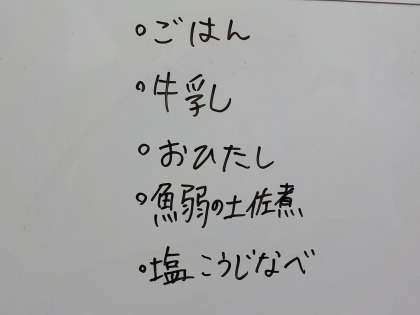 ○ごはん
○牛乳
○おひたし
○魚弱の土佐煮
○塩こうじなべ